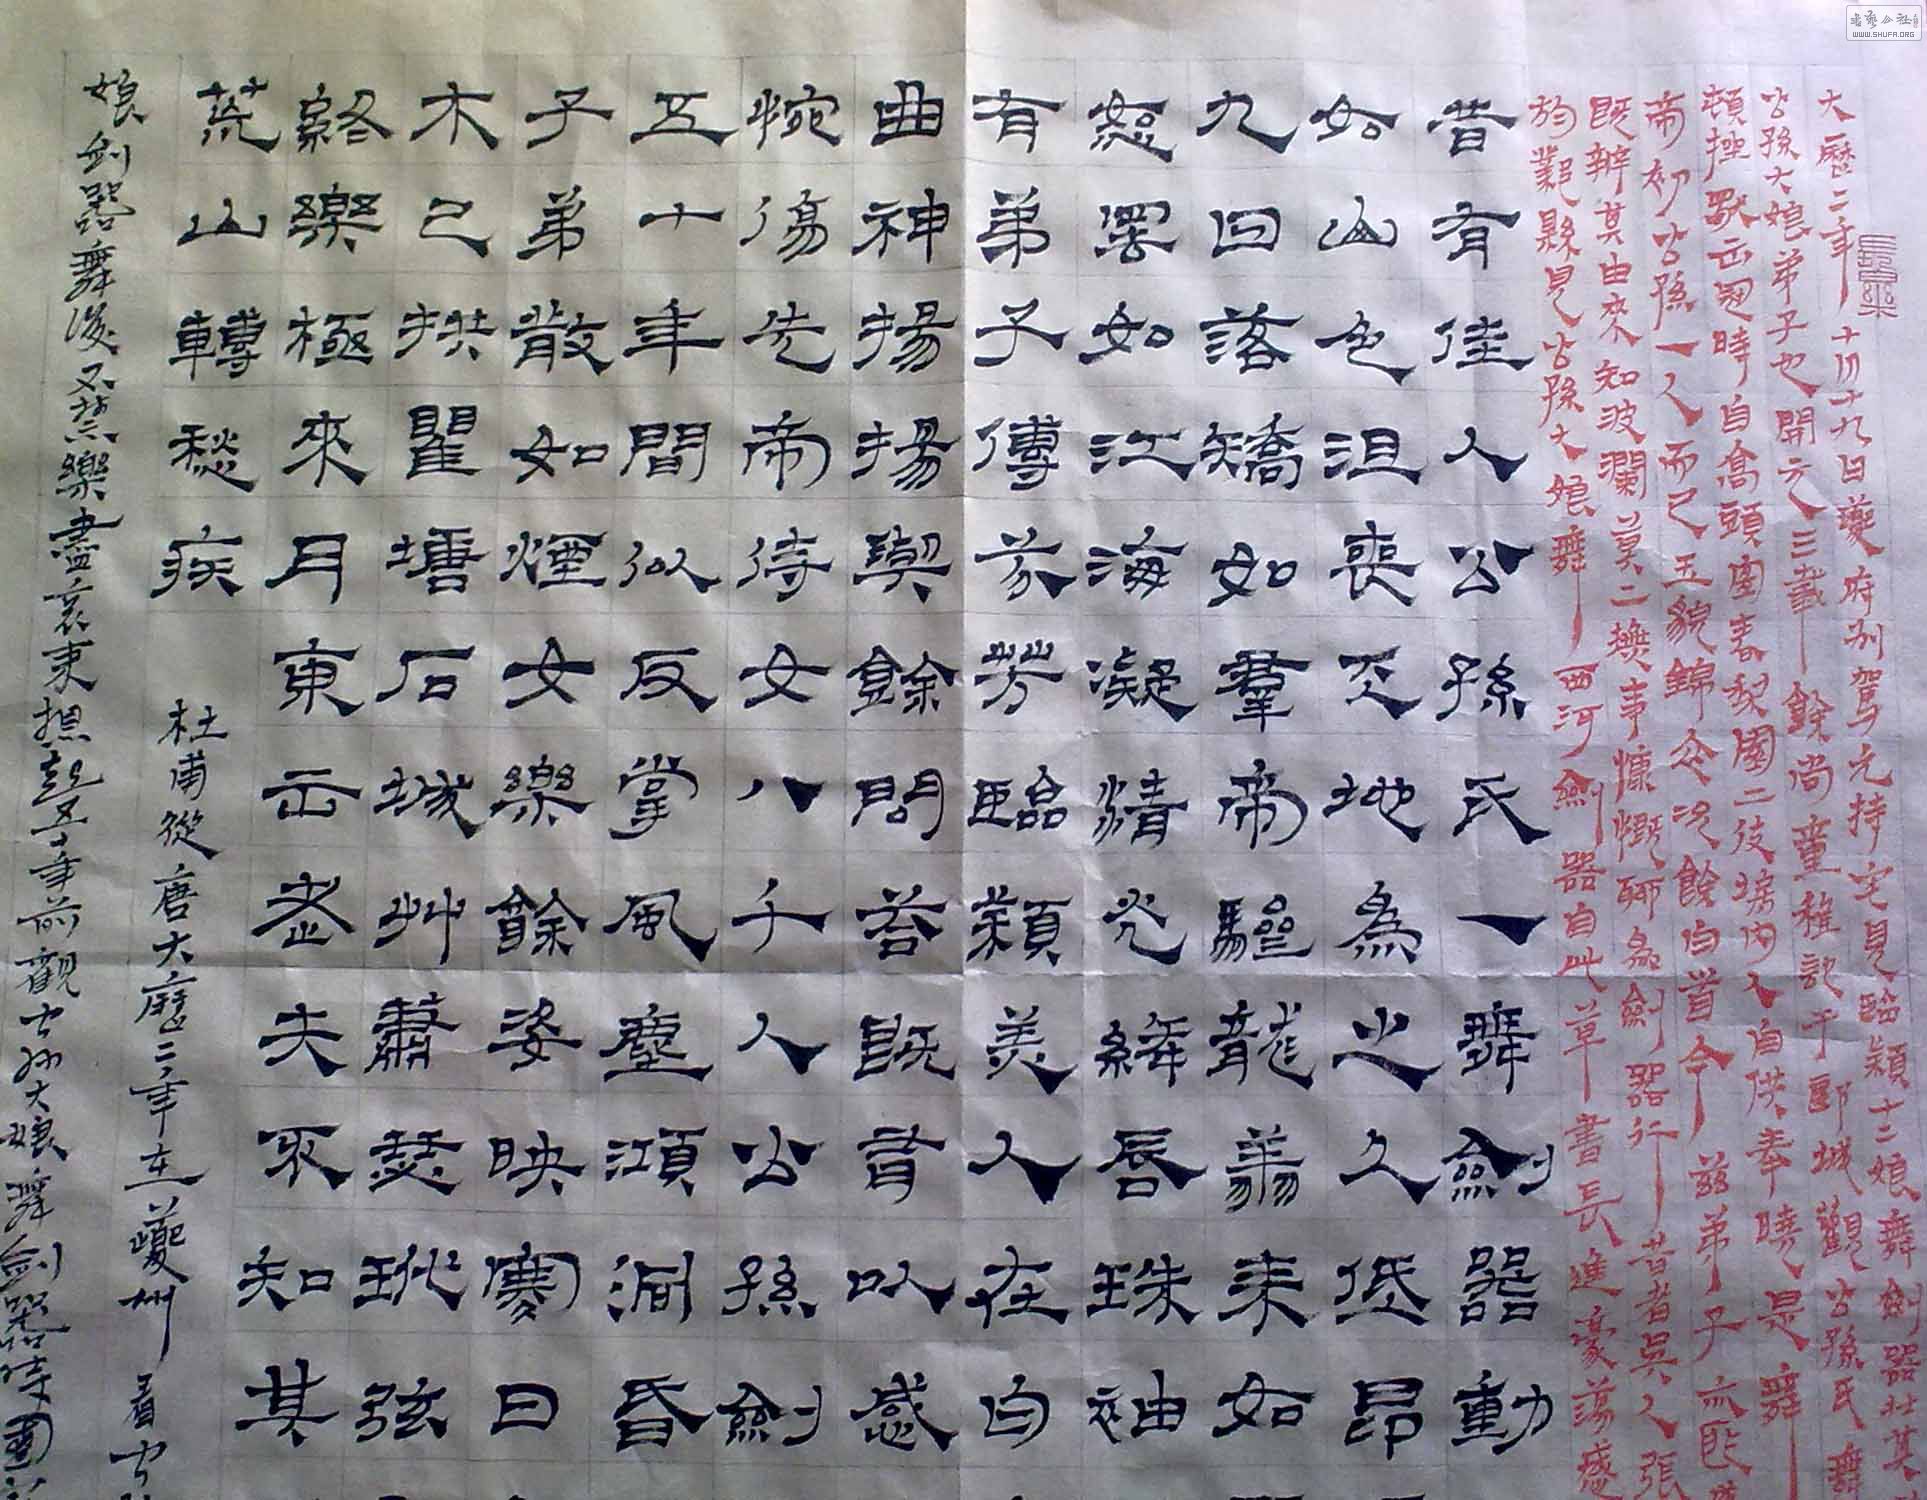 书艺公社
WWW.SHUFA.ORG
大曆二年十月十九日夔府别駕元持宅見臨潁十二娘舞劍器壯其
公孫大娘弟子也開元三載餘尚童稚記于郾城觀公孫氏舞
頓挫獨出冠時自高頭宜春梨園二伎坊内人自供奉曉是舞
帝初公孫一人而已玉貌錦衣況餘白首今兹弟子亦匪
既辨其由來知波瀾莫二撫事慷慨聊為劍器行昔者吳人張
於鄴縣見公孫大娘舞西河劍器自此草書長進豪蕩感
昔有佳人公孫氏一舞劍器動
如山色沮喪天地為之久低昂
九日落矯如羣帝驂龍翔来如
怒罷如江海凝精光絳唇珠袖
有弟子傳芬芳臨潁美人在白
曲神揚揚與餘問答既有以感
惋傷先帝侍女八千人公孫劍
五十年間似反掌風塵澒洞昏
子弟散如煙女樂餘姿映寒日
木已拱瞿塘石城艸蕭瑟玳弦
絡樂極來月東出老夫不知其
荒山轉愁疾
杜甫從唐大曆二年在夔州看公
娘劍器舞後不禁樂盡哀來想起五十年前觀公孫大娘舞劍器時圍